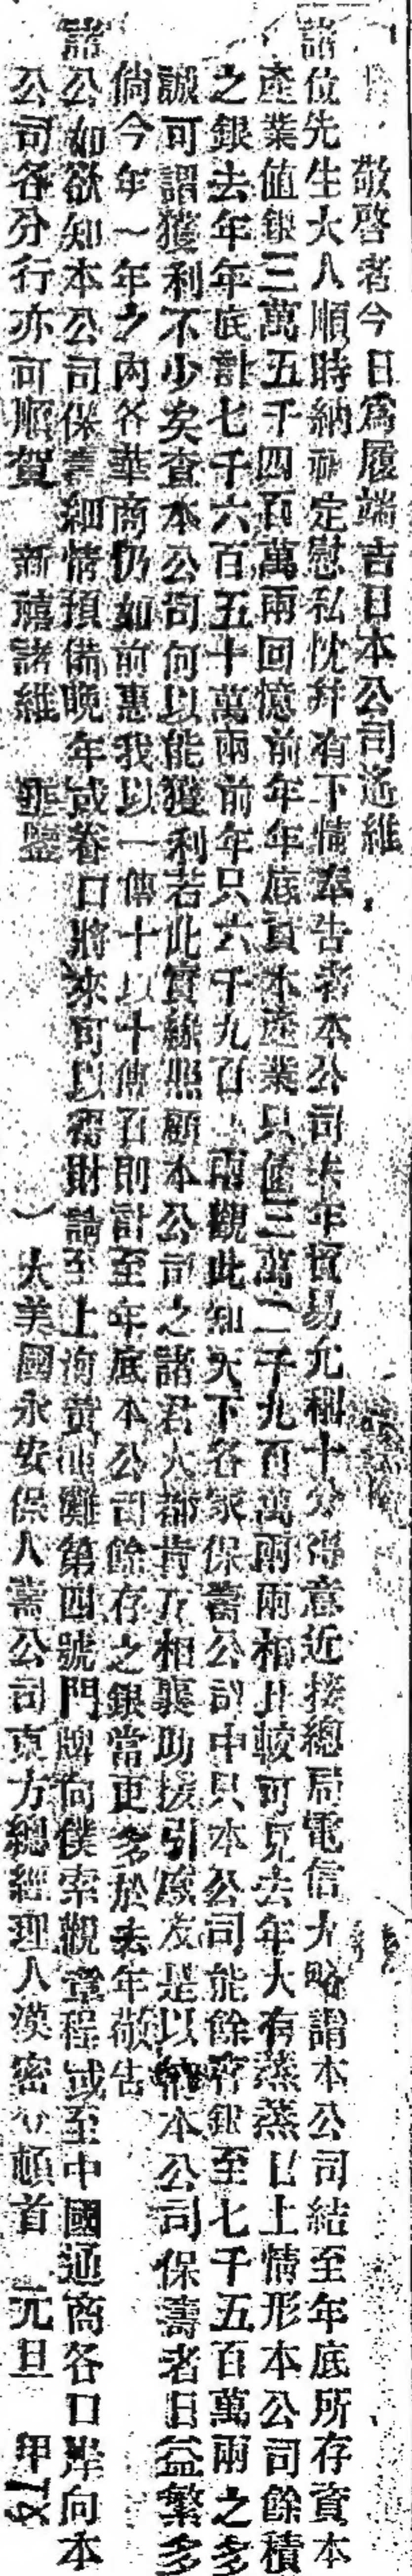 敬啓者今日爲履端吉日本公司遙維
諸位先生大人順時納祜定慰私忱幷有下情奉告者本公司去年貿易尤稱十分得意近接總局電信大畧謂本公司結至年底所存資本
產業值銀三萬五千四百萬兩回憶前年年底資本產業只值三萬二千九百萬兩兩相比較可見去年大有蒸蒸日上情形本公司餘積
之銀去年年底計七千六百五十萬兩前年只六千九百兩觀此知天下各家保壽公司中只本公司能餘存銀至七千五百萬兩之多
誠可謂獲利不少矣查本公司何以能獲利若此實緣照顧本公司之諸君大都肯互相襄助接引戚友是以向本公司保壽者日益繁多
倘今年一年之內各華商仍如前惠我以一傳十以十傳百則計至年底本公司餘存之銀當更多於去年敬告
諸公如欲知本公司保壽細情預備晚年或眷口將來可以需財請至上海黃浦灘第四號門牌向僕索觀章程或至中國通商各口岸向本
公司各分行亦可順賀　新禧諸維　垂鑒　大美國永安保人壽公司東方總經理人漢密頓首　元旦